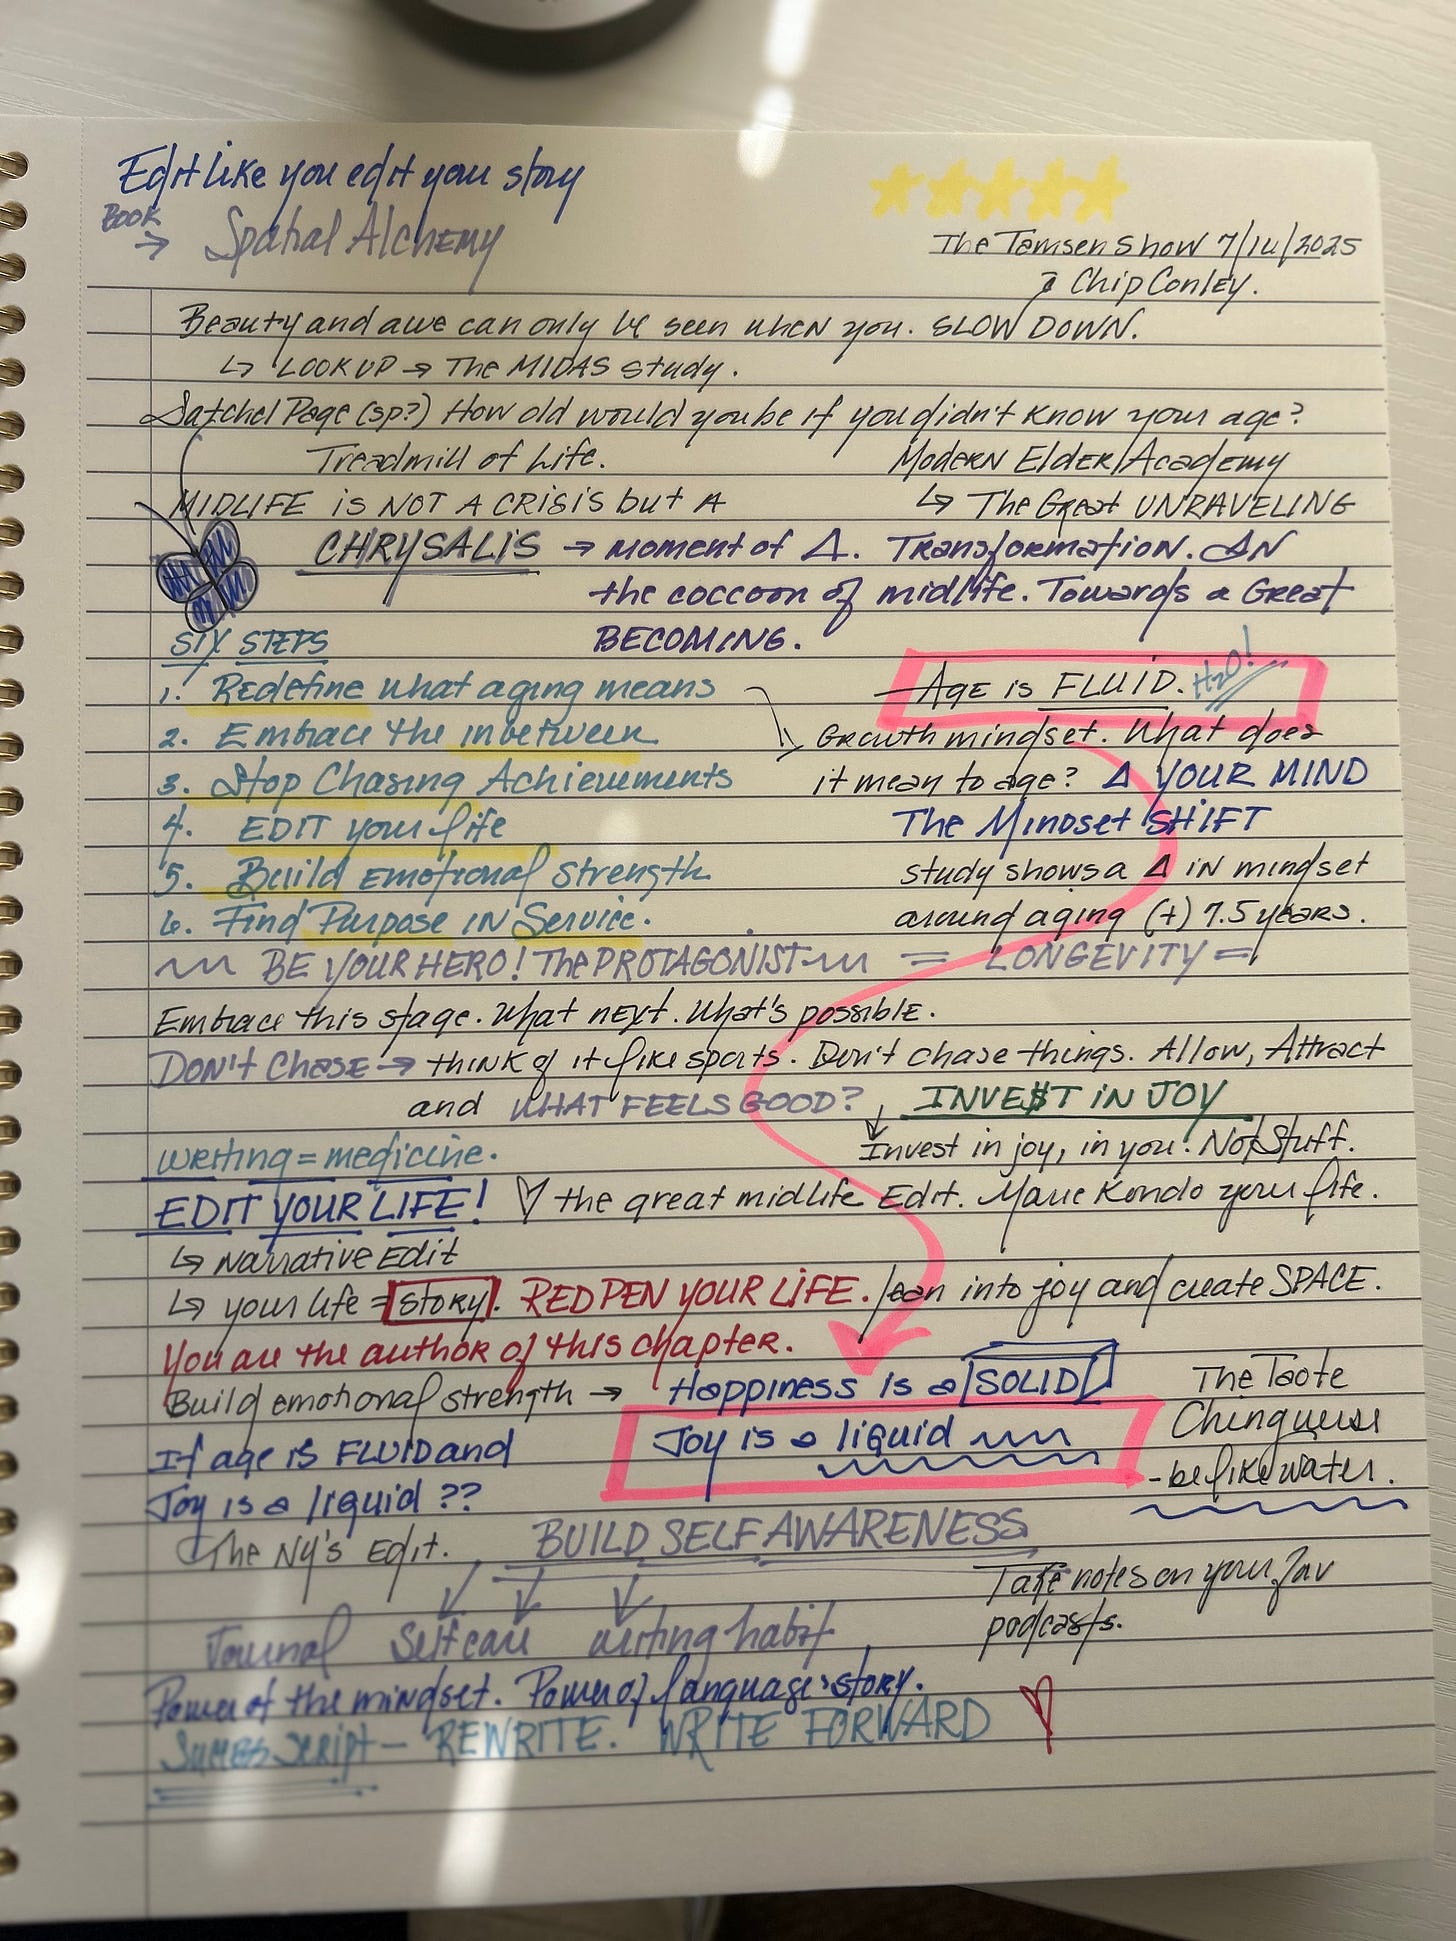 Edit like you edit your story
BOOK
→ Spatial Alchemy
The Tamsen Show 7/14/2025
Chip Conley.
Beauty and awe can only be seen when you. SLOW DOWN.
↳ LOOK UP → The MIDAS study.
Satchel Page (sp?) How old would you be if you didn't know your age?
Treadmill of Life.
Modern Elder Academy
MIDLIFE is NOT A CRISIS but A
↳ The Great UNRAVELING
CHRYSALIS → moment of Δ. Transformation. IN
the coccoon of midlife. Towards a Great
BECOMING.
SIX STEPS
1. Redefine what aging means
2. Embrace the inbetween
3. Stop Chasing Achievements
4. EDIT your life
5. Build Emotional Strength
6. Find Purpose in Service.
Age is FLUID. H2O!
Growth mindset. What does
it mean to age? Δ YOUR MIND
The Mindset SHIFT
study shows a Δ in mindset
around aging (+) 7.5 years.
BE YOUR HERO! The PROTAGONIST
= LONGEVITY =
Embrace this stage. What next. What's possible.
DON'T CHASE → think of it like sports. Don't chase things. Allow, Attract
and WHAT FEELS GOOD?
INVE$T IN JOY
Invest in joy, in you! Not Stuff.
writing = medicine.
EDIT YOUR LIFE! ♡ the great midlife Edit. Marie Kondo your life.
↳ Narrative Edit
↳ your life = STORY. RED PEN YOUR LIFE. lean into joy and create SPACE.
You are the author of this chapter.
Build emotional strength → Happiness is a SOLID
Joy is a liquid
The Taote
Chinguese
- be like water.
If age is FLUID and
Joy is a liquid ??
The NY's Edit.
BUILD SELF AWARENESS
Journal Selfcare writing habit
Take notes on your fav
podcasts.
Power of the mindset. Power of language & story.
Success script - REWRITE. WRITE FORWARD ♡